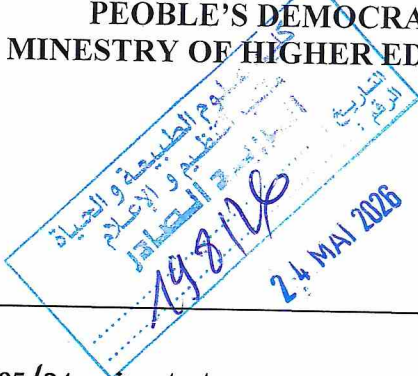 PEOBLE'S DEMOCRA
MINESTRY OF HIGHER ED
علوم الطبيعة و الحياة
التنظيم و الإعلام
الصادر
التاريخ
الرقم
198/26
24 MAI 2026